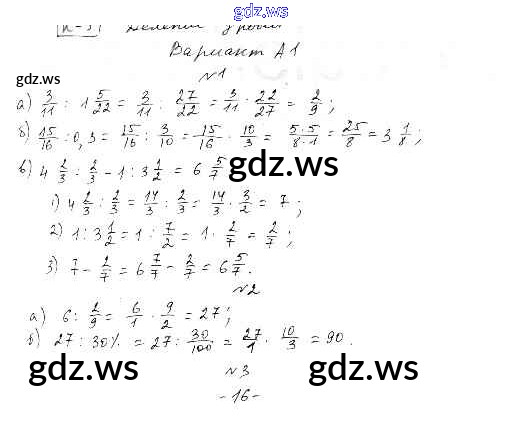 gdz.ws
К-5 Деление дробей
Вариант А1
№1
gdz.ws
а) 3/11 : 1 5/22 = 3/11 : 27/22 = 3/11 · 22/27 = 2/9 ;
б) 15/16 : 0,3 = 15/16 : 3/10 = 15/16 · 10/3 = 5·5/8·1 = 25/8 = 3 1/8 ;
в) 4 2/3 : 2/3 - 1 : 3 1/2 = 6 5/7
gdz.ws
1) 4 2/3 : 2/3 = 14/3 : 2/3 = 14/3 · 3/2 = 7 ;
2) 1 : 3 1/2 = 1 : 7/2 = 1 · 2/7 = 2/7 ;
3) 7 - 2/7 = 6 7/7 - 2/7 = 6 5/7 .
№2
а) 6 : 2/9 = 6/1 · 9/2 = 27 ;
б) 27 : 30% = 27 : 30/100 = 27/1 · 10/3 = 90 .
gdz.ws gdz.ws
№3
- 16 -